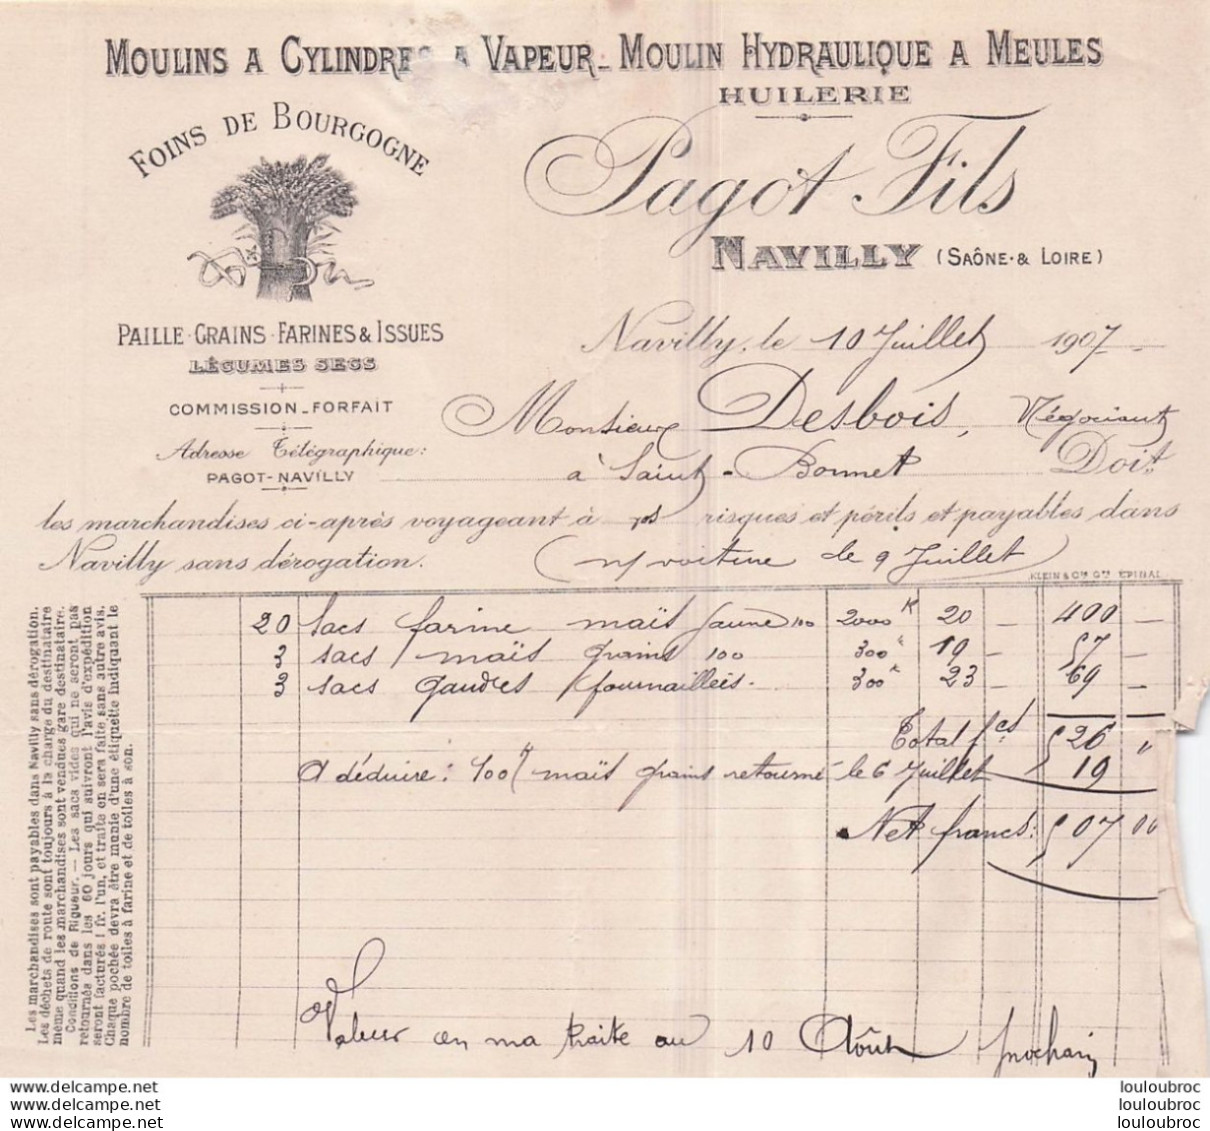 MOULINS A CYLINDRES A VAPEUR_ MOULIN HYDRAULIQUE A MEULES
HUILERIE
FOINS DE BOURGOGNE
Pagot Fils
NAVILLY (SAÔNE·& LOIRE)
PAILLE·GRAINS·FARINES & ISSUES
LÉGUMES SECS
COMMISSION_FORFAIT
Adresse Télégraphique:
PAGOT-NAVILLY
Navilly, le 10 Juillet 1907
Monsieur Desbois, Négociant
à Saint-Bonnet Doit
les marchandises ci-après voyageant à vos risques et périls et payables dans
Navilly sans dérogation. (n/ voiture le 9 Juillet)
KLEIN & Cie Gr. EPINAL
20 sacs farine maïs jaune 100 2000 K 20 — 400 —
3 sacs maïs grains 100 300 K 19 — 57 —
3 sacs gaudes fournailleis. 300 K 23 — 69 —
Total fcs 526 "
A déduire: 100 K maïs grains retourné le 6 Juillet 19
Net francs: 507 00
Valeur en ma traite au 10 Août prochain
Les marchandises sont payables dans Navilly sans dérogation.
Les déchets de route sont toujours à la charge du destinataire
même quand les marchandises sont vendues gare destinataire.
Conditions de Rigueur. — Les sacs vides qui ne seront pas
retournés dans les 60 jours qui suivront l'avis d'expédition
seront facturés 1 fr. l'un, et traite en sera faite sans autre avis.
Chaque pochée devra être munie d'une étiquette indiquant le
nombre de toiles à farine et de toiles à son.
louloubroc
louloubroc
louloubroc